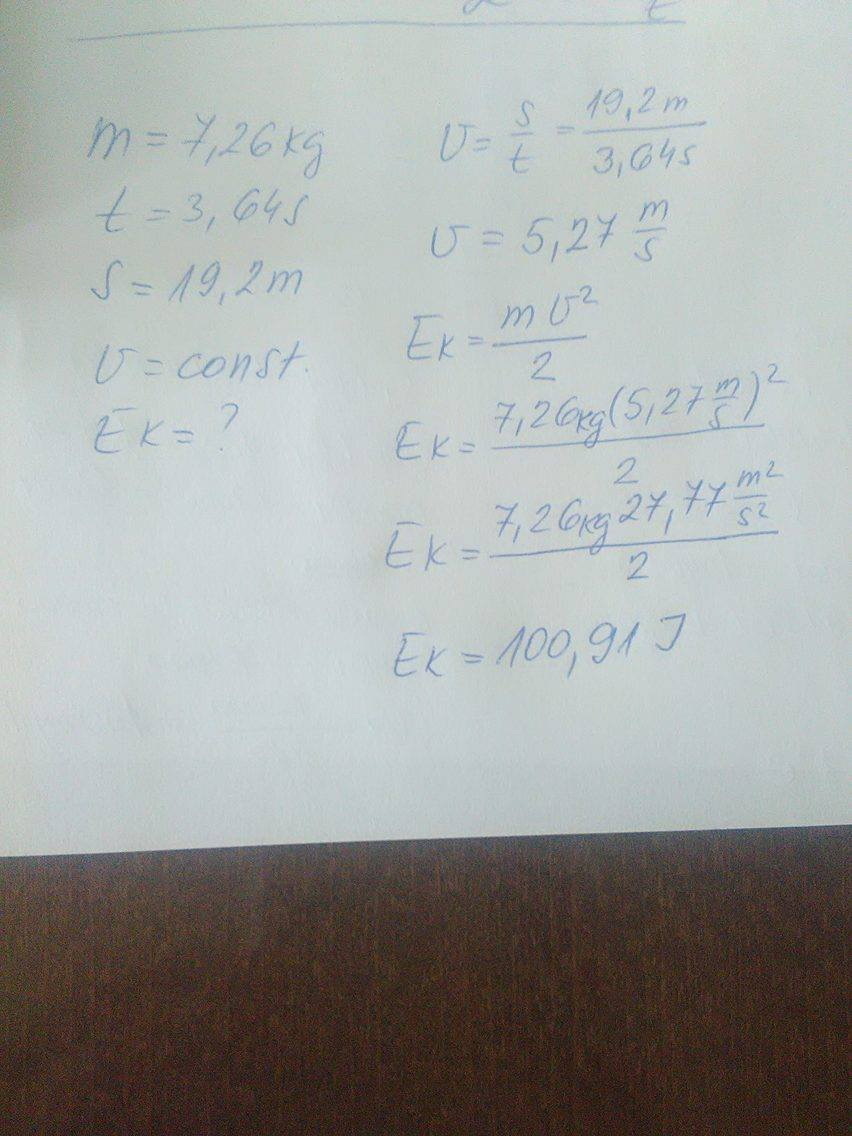 m = 7,26 kg
t = 3,64 s
s = 19,2 m
v = const.
Ek = ?
v = s/t = 19,2 m / 3,64 s
v = 5,27 m/s
Ek = m v² / 2
Ek = 7,26 kg (5,27 m/s)² / 2
Ek = 7,26 kg 27,77 m²/s² / 2
Ek = 100,91 J